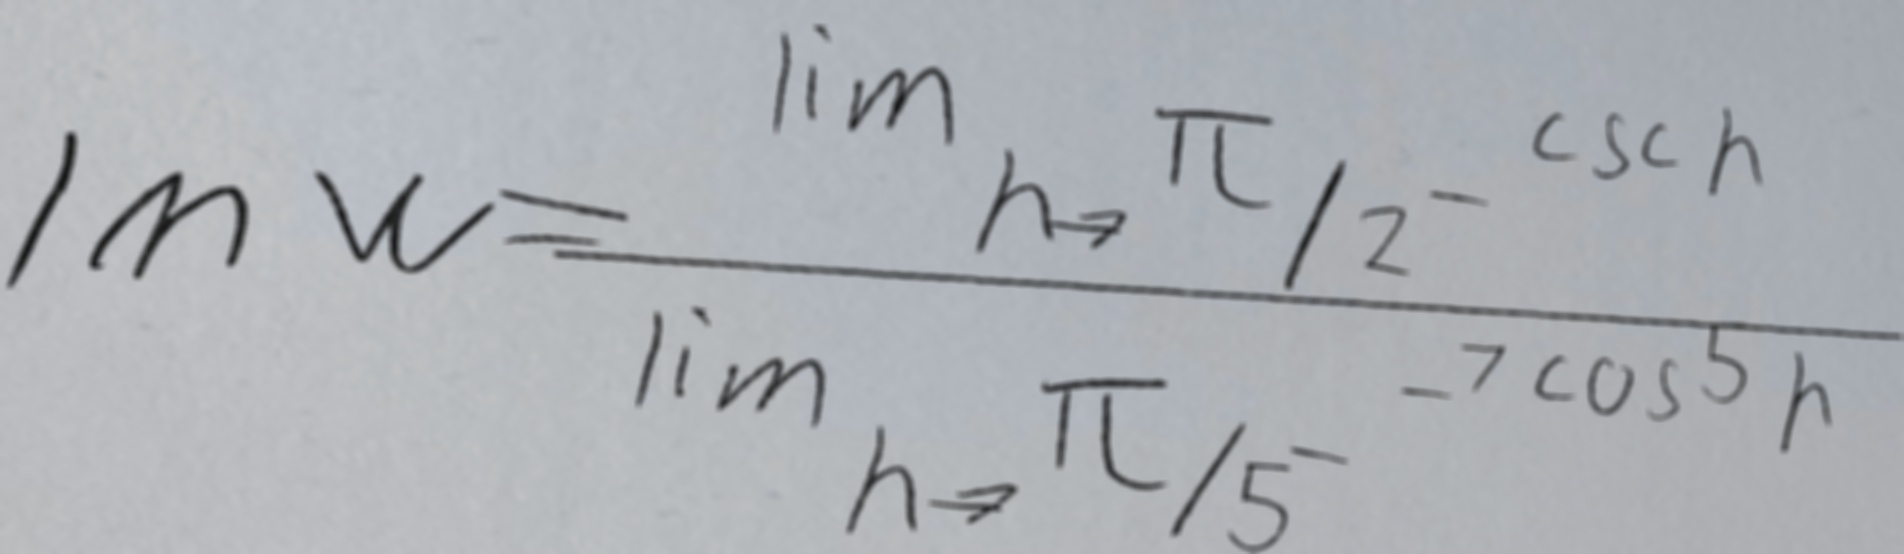 ln w = \frac{\lim_{h \to \pi/2^-} \csc h}{\lim_{h \to \pi/5^-} -7 \cos^5 h}